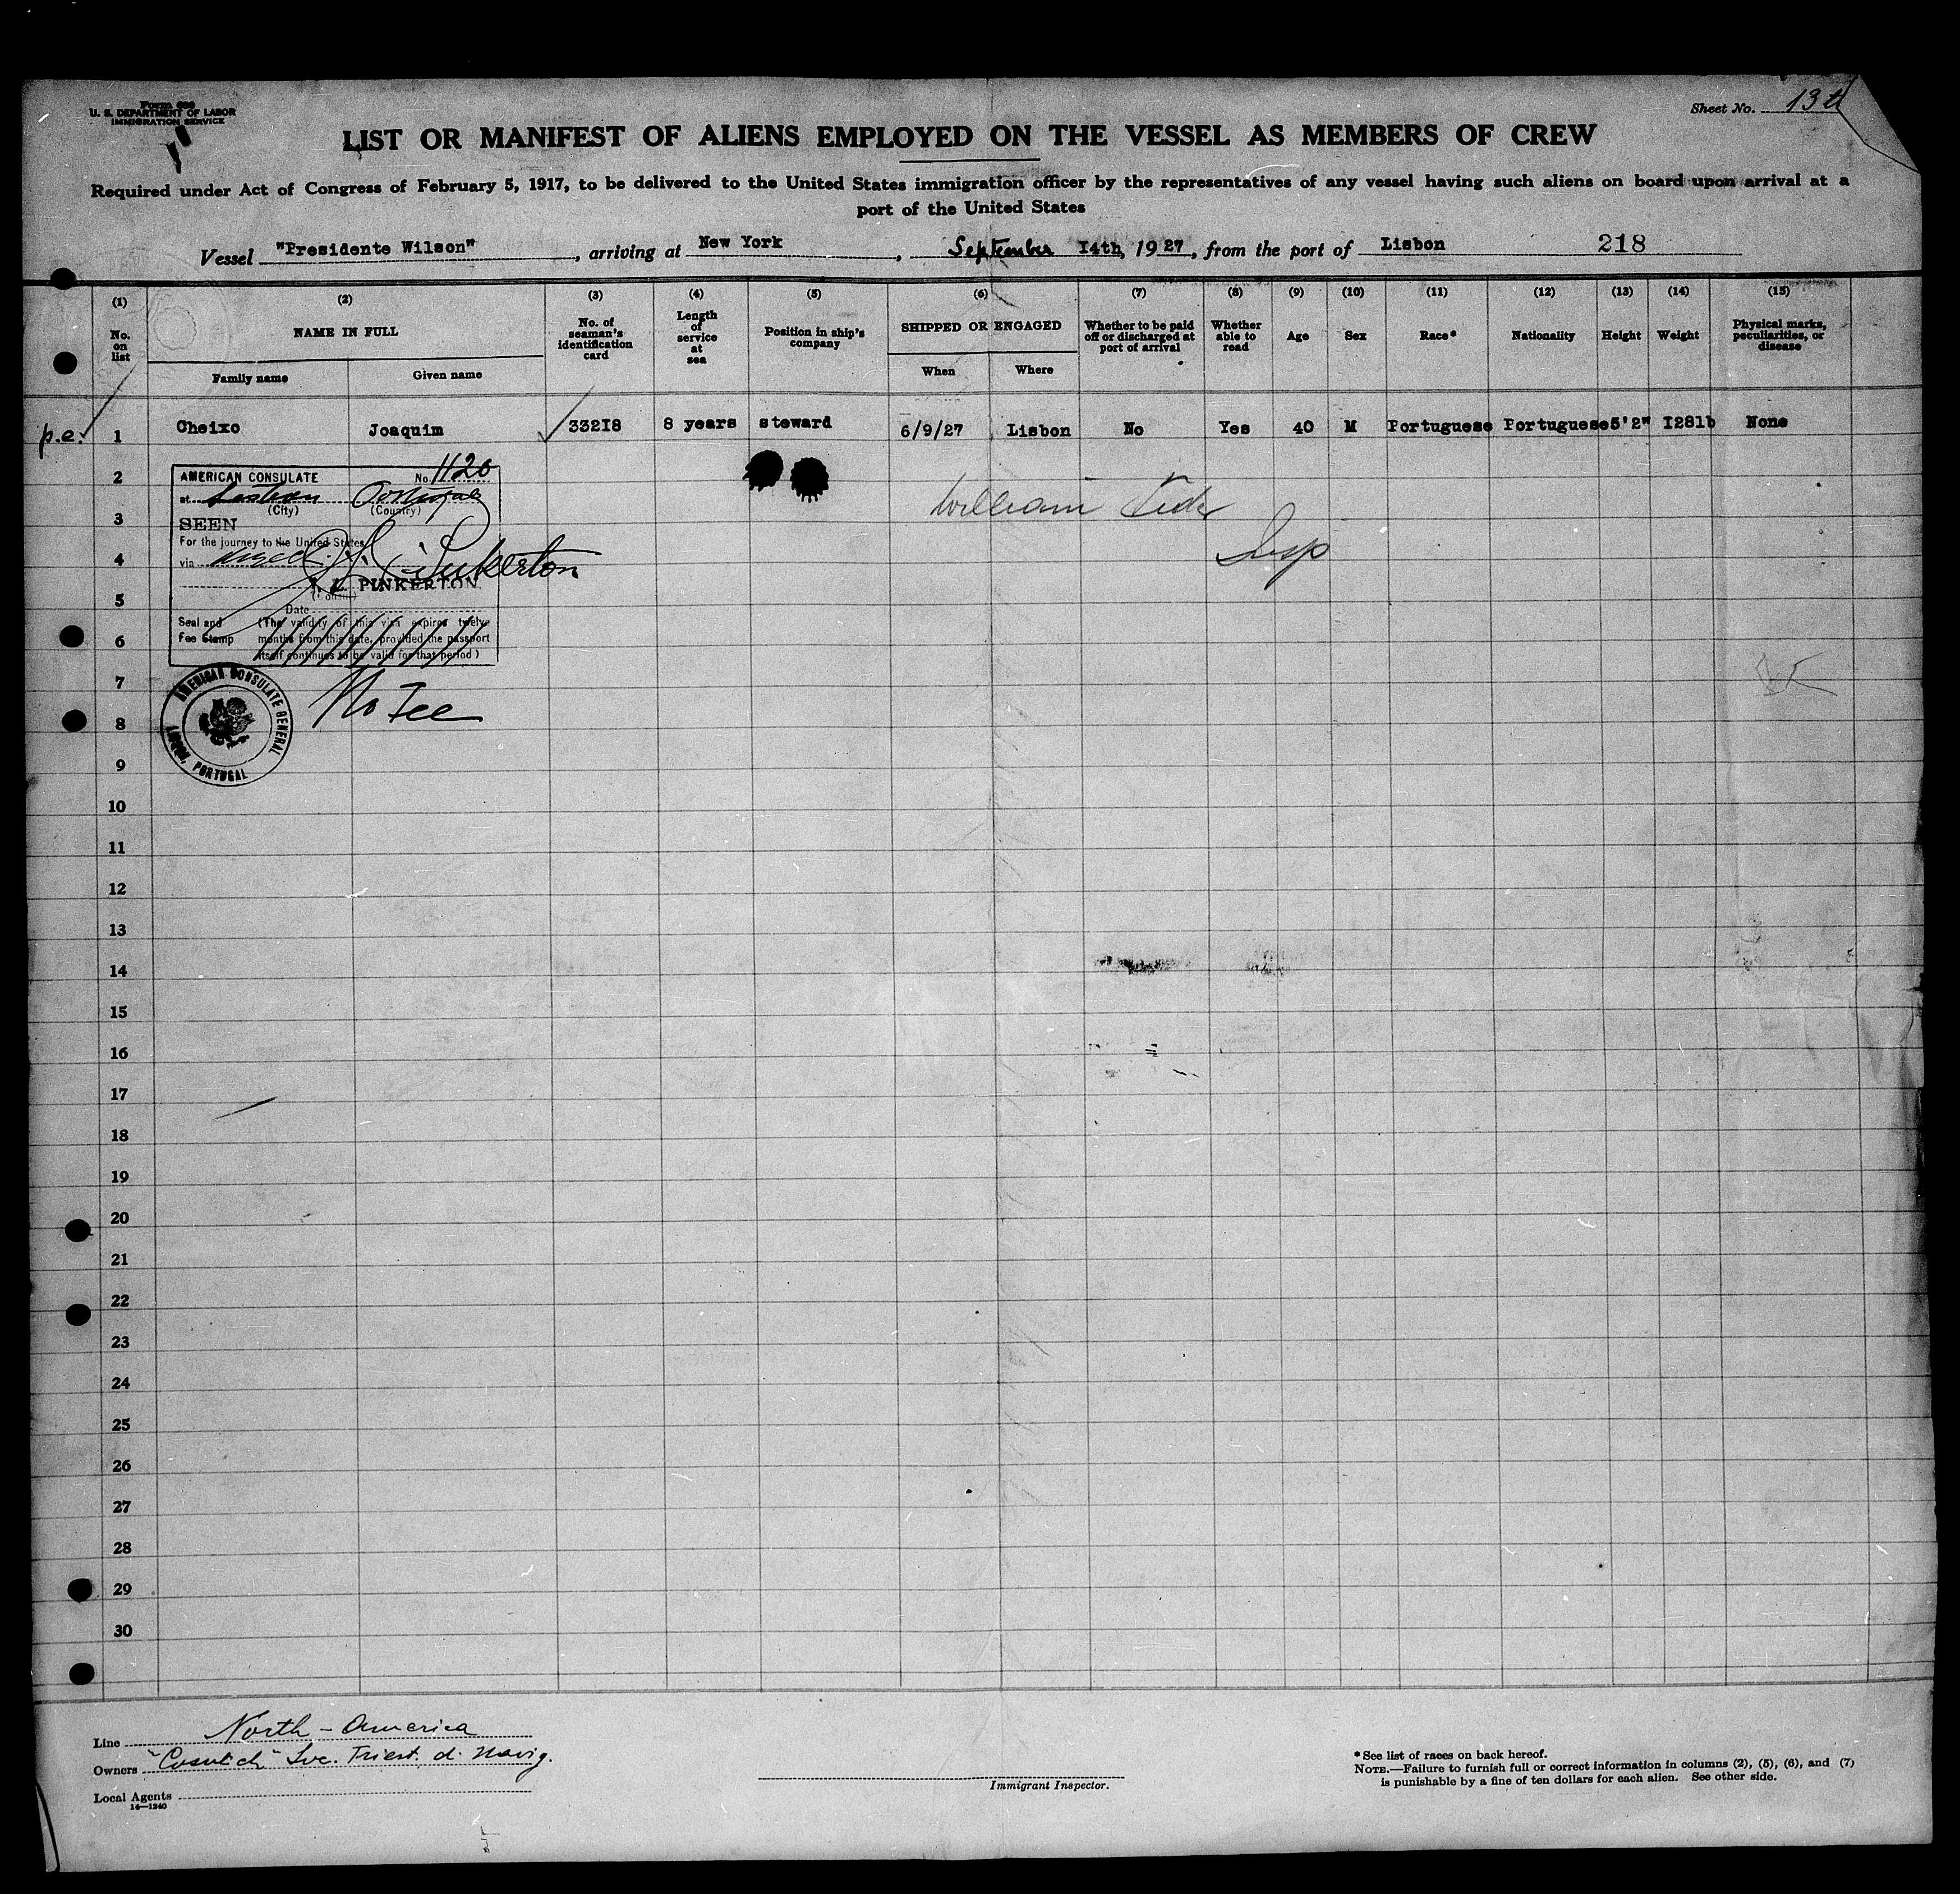 Form 680
U. S. DEPARTMENT OF LABOR
IMMIGRATION SERVICE
Sheet No. 13th
LIST OR MANIFEST OF ALIENS EMPLOYED ON THE VESSEL AS MEMBERS OF CREW
Required under Act of Congress of February 5, 1917, to be delivered to the United States immigration officer by the representatives of any vessel having such aliens on board upon arrival at a
port of the United States
Vessel "Presidente Wilson", arriving at New York, September 14th, 1927, from the port of Lisbon 218
(1) No. on list
(2) NAME IN FULL
Family name Given name
(3) No. of seaman's identification card
(4) Length of service at sea
(5) Position in ship's company
(6) SHIPPED OR ENGAGED
When Where
(7) Whether to be paid off or discharged at port of arrival
(8) Whether able to read
(9) Age
(10) Sex
(11) Race*
(12) Nationality
(13) Height
(14) Weight
(15) Physical marks, peculiarities, or disease
p.e. 1 Cheixo Joaquim 33218 8 years steward 6/9/27 Lisbon No Yes 40 M Portuguese Portuguese 5'2" 128lb None
2
3
4
5
6
7
8
9
10
11
12
13
14
15
16
17
18
19
20
21
22
23
24
25
26
27
28
29
30
AMERICAN CONSULATE No. 1120
at Lisbon Portugal
(City) (Country)
SEEN
For the journey to the United States
via
PINKERTON
Date
Seal and Fee Stamp
(The validity of this visa expires twelve
months from this date, provided the passport
itself continues to be valid for that period)
AMERICAN CONSULATE GENERAL
LISBON, PORTUGAL
No Fee
William
Insp
Line North-America
Owners "Cosulich" Soc. Triest. d. Navig.
Local Agents
14—1240
Immigrant Inspector.
* See list of races on back hereof.
NOTE.—Failure to furnish full or correct information in columns (2), (5), (6), and (7)
is punishable by a fine of ten dollars for each alien. See other side.